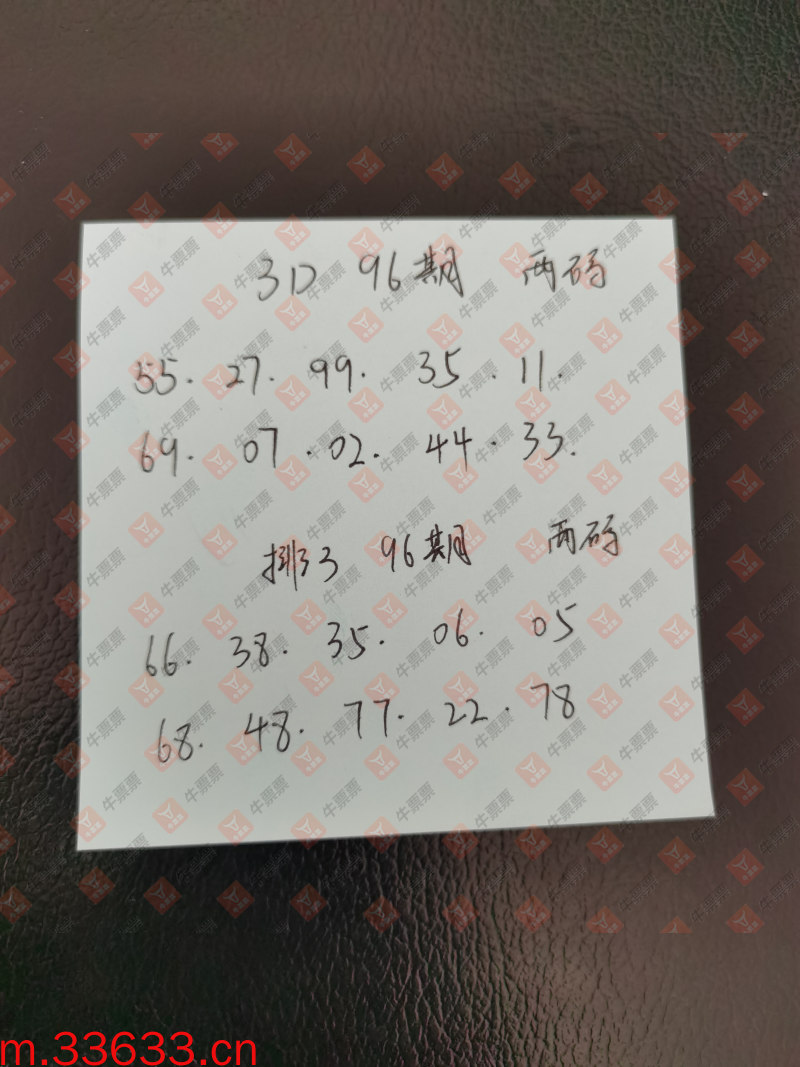 3D 96期 两码
55. 27. 99. 35. 11.
69. 07. 02. 44. 33.
排3 96期 两码
66. 38. 35. 06. 05
68. 48. 77. 22. 78
m.33633.cn
牛票票